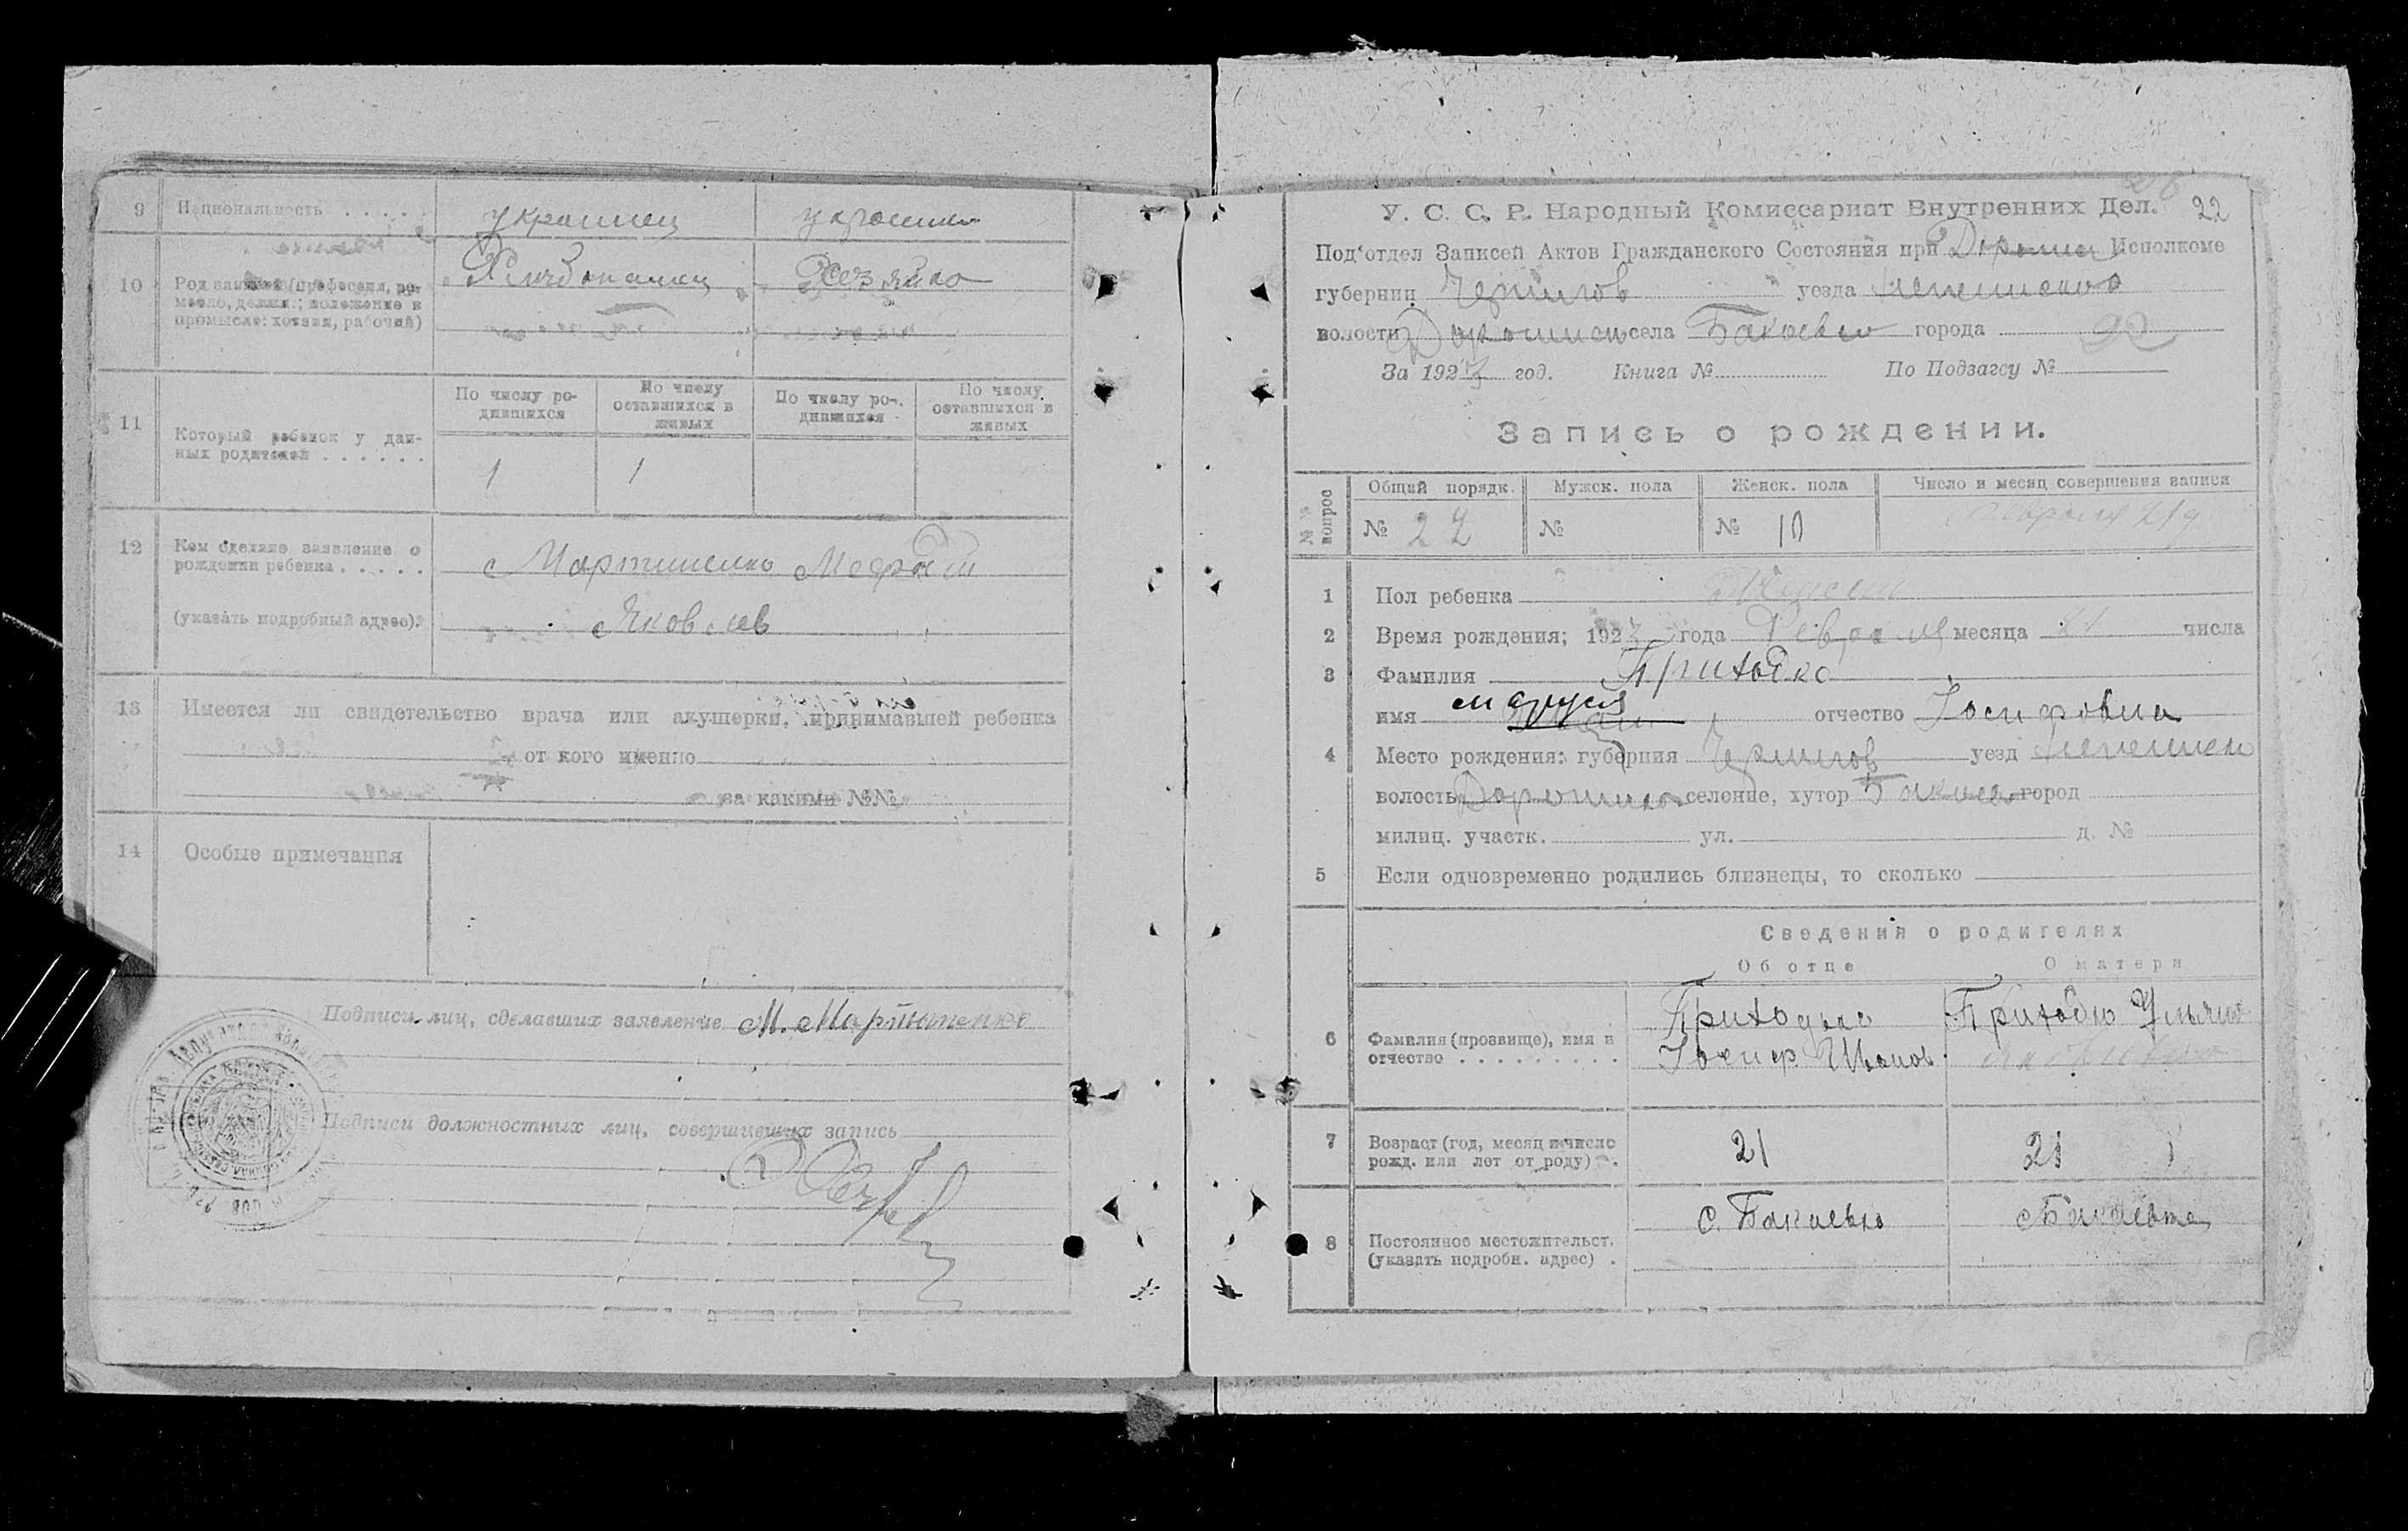 9 Национальность . . . . . украинец украинка
10 Род занятий (професеия, ре- Хлибопашец Хозяйка
месло, должн.; положение в
промысле: хозяин, рабочий)
По числу ро-
дившихся По числу
оставшихся в
живых По числу ро-
дившихся По числу
оставшихся в
живых
11 Который ребенок у дан-
ных родителей . . . . . . 1 1
12 Кем сделано заявление о
рождении ребенка . . . . . Мартиненко
(указать подробный адрес). Яковлев
13 Имеется ли свидетельство врача или акушерки, принимавшей ребенка
от кого именно
за какими №№
14 Особые примечания
Подписи лиц, сделавших заявление М. Мартыненко
Подписи должностных лиц, совершивших запись
У. С. С. Р. Народный Комиссариат Внутренних Дел. 22
Под'отдел Записей Актов Гражданского Состояния при Исполкоме
губернии Чернигов уезда
волости села Бакаевки города
За 1923 год. Книга № По Подзагсу №
Запись о рождении.
№№ вопрос Общий порядк. Мужск. пола Женск. пола Число и месяц совершения записи
№ 22 № № 10 Февраля 21
1 Пол ребенка Женский
2 Время рождения; 1923 года Февраля месяца 21 числа
3 Фамилия Приходко
имя Маруся отчество Іосифовна
4 Место рождения: губерния Чернигов уезд
волость селение, хутор Бакаевка город
милиц. участк. ул. д. №
5 Если одновременно родились близнецы, то сколько
Сведения о родителях
Об отце О матери
6 Фамилия (прозвище), имя и
отчество . . . . . . . . . Приходько
Іосиф Иванов. Приходко
7 Возраст (год, месяц и число
рожд. или лет от роду) . 21 21
8 Постоянное местожительст.
(указать подробн. адрес) . с. Бакаевка с Бакаевка